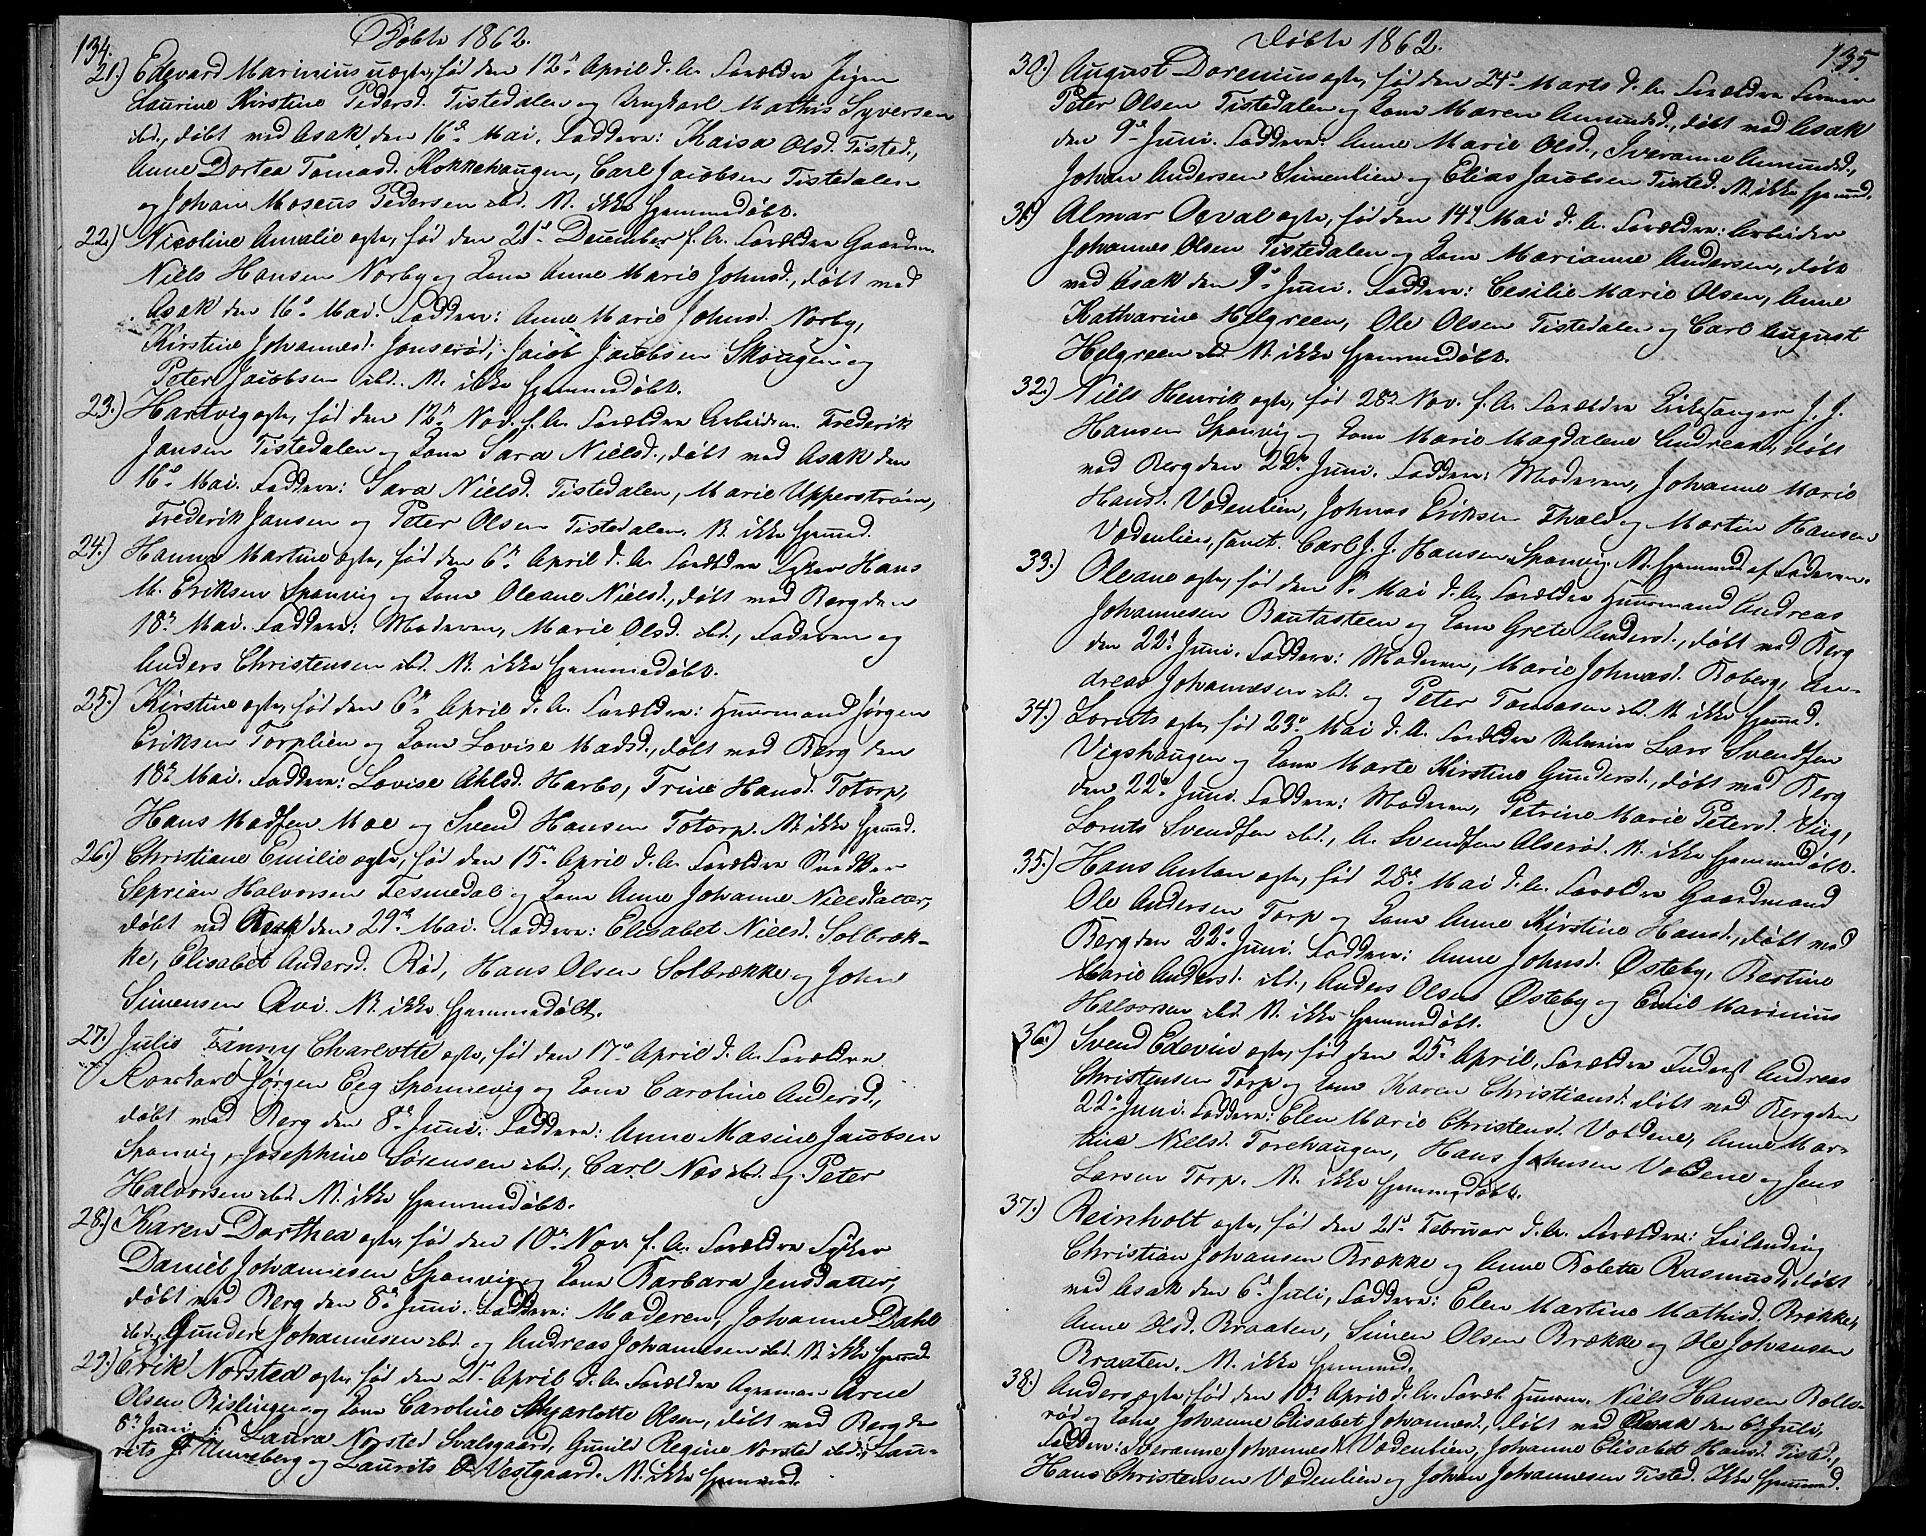 134. Døbte 1862.
21.) Edevard Marinius uægte, fød den 12te April d. A. Forældre Pigen
Laurine Kirstine Pedersd. Tistedalen og Ungkarl Mathis Syversen
ibd., døbt ved Asak den 16de Mai. Faddere: Kaisa Olsd. Tisted.,
Anne Dortea Tomasd. Kokkehaugen, Carl Jacobsen Tistedalen
og Johan Moseus Pedersen ibd. N. ikke hjemmedøbt.
22.) Nicoline Amalie ægte, fød den 21de December f. A. Forældre Gaardm.
Niels Hansen Norby og Kone Anne Marie Johnsd., døbt ved
Asak den 16de Mai. Faddere: Anne Marie Johnsd. Norby,
Kirstine Johannesd. Jonserød, Jacob Jacobsen Skougen og
Peter Jacobsen ibd. N. ikke hjemmedøbt.
23.) Hartvig ægte, fød den 12te Nov. f. A. Forældre Arbeidsm. Frederik
Jansen Tistedalen og Kone Sara Nielsd., døbt ved Asak den
16de Mai. Faddere: Sara Nielsd. Tistedalen, Marie Upperstrøm,
Frederik Jansen og Peter Olsen Tistedalen. N. ikke hjemmd.
24.) Hanna Martine ægte, fød den 6te April d. A. Forældre Hans
M. Eriksen Sponvig og Kone Oleane Nielsd., døbt ved Berg den
18de Mai. Faddere: Moderen, Marie Olsd. ibd., Faderen og
Anders Christensen ibd. N. ikke hjemmedøbt.
25.) Kirstine ægte, fød den 6te April d. A. Forældre: Huusmand Jørgen
Eriksen Torplien og Kone Lovise Madsd., døbt ved Berg den
18de Mai. Faddere: Lovise Ahlsd. Harbo, Trine Hansd. Totorp,
Hans Madsen Moe og Svend Hansen Totorp. N. ikke hjmd.
26.) Christiane Emilie ægte, fød den 15de April d. A. Forældre Snedker
Seprian Halvorsen Tesmedal og Kone Anne Johanne Nielsdatter,
døbt ved Asak den 29de Mai. Faddere: Elisabet Nielsd. Solbræk-
ke, Elisabet Andersd. Rød, Hans Olsen Solbrække og John
Simensen Qvi. N. ikke hjemmedøbt.
27.) Julie Fanny Charlotte ægte, fød den 17de April d. A. Forældre
Jørgen Eeg Sponnevig og Kone Caroline Andersd.,
døbt ved Berg den 8de Juni. Faddere: Anne Masine Jacobsen
Sponvig, Josephine Sørensen ibd., Carl Næs ibd. og Peter
Halvorsen ibd. N. ikke hjemmedøbt.
28.) Karen Dorthea ægte, fød den 10de Nov. f. A. Forældre
Daniel Johannesen Sponvig og Kone Barbara Jensdatter,
døbt ved Berg den 8de Juni. Faddere: Moderen, Johanne Dahl
ibd., Gunder Johannesen ibd. og Andreas Johannesen ibd. N. ikke hjmmd.
29.) Erik Norsted ægte, fød den 21de April d. A. Forældre Arne
Olsen Rislingen og Kone Caroline Charlotte Olsen, døbt ved Berg den
8de Juni. F.: Laura Norsted Svalsgaard, Gunild Regine Norsted ibd., Lau-
rits J. Tluneberg og Laurits O. Vestgaard. N. ikke hjemmd.
Døbte 1862. 135
30.) August Dorenius ægte, fød den 24de Marts d. A. Forældre
Peter Olsen Tistedalen og Kone Maren Amundsd., døbt ved Asak
den 9de Juni. Faddere: Anne Marie Olsd., Iveranne Amundsd.,
Johan Andersen Simenlien og Elias Jacobsen Tisted. N. ikke hjemmd.
31.) Almar Osval ægte, fød den 14de Mai d. A. Forældre: Arbeider
Johannes Olsen Tistedalen og Kone Marianne Andersen, døbt
ved Asak den 9de Juni. Faddere: Cesilie Marie Olsen, Anne
Katharine Helgreen, Ole Olsen Tistedalen og Carl August
Helgreen ibd. N. ikke hjemmedøbt.
32.) Niels Henrik ægte, fød 28de Nov. f. A. Forældre Kirkesanger J. J.
Hansen Sponvig og Kone Marie Magdalene Andreasd., døbt
ved Berg den 22de Juni. Faddere: Moderen, Johanne Marie
Hansd. Vødenlien, Johnas Eriksen og Martin Hansen
Vødenlien, samt. Carl J. J. Hansen, Sponvig. N. hjemmd. af Faderen.
33.) Oleane ægte, fød den Mai d. A. Forældre Huusmand Andreas
Johannesen Bautasteen og Kone Grete Andersd., døbt ved Berg
den 22de Juni. Faddere: Moderen, Marie Johnasd. Roberg, An-
dreas Johannesen ibd. og Peter Tomasen ibd. N. ikke hjemmd.
34.) Lornts ægte, fød 23de Mai d. A. Forældre Lars Svendsen
Vigshaugen og Kone Marte Kirstine Gundersd., døbt ved Berg
den 22de Juni. Faddere: Moderen, Petrine Marie Petersd. Vig,
Lornts Svendsen ibd., A. Svendsen Alserød. N. ikke hjemmedøbt.
35.) Hans Anton ægte, fød 28de Mai d. A. Forældre Gaardmand
Ole Andersen Torp og Kone Anne Kirstine Hansd., døbt ved
Berg den 22de Juni. Faddere: Anne Johnsd. Østeby, Bertine
Marie Andersd. ibd., Anders Olsen Østeby og Emil Marinius
Halvorsen ibd. N. ikke hjemmedøbt.
36.) Svend Edevin ægte, fød den 25de April, Forældre Inderst Andreas
Christensen Torp og Kone Karen Christiansd. døbt ved Berg den
22de Juni. Faddere: Elen Marie Christensd. Voldene, Anne Mar-
tine Nielsd. Torehaugen, Hans Johnsen Voldene og Jens
Larsen Torp. N. ikke hjemmedøbt.
37.) Reinholt ægte, fød den 21de Februar d. A. Forældre: Leilending
Christian Johansen Brække og Anne Bolette Rasmusd., døbt
ved Asak den 6te Juli, Faddere: Elen Martine Mathisd. Brække,
Anne Olsd. Braaten, Simen Olsen Brække og Ole Johansen
Braaten. N. ikke hjemmd.
38.) Anders ægte, fød den 10de April d. A. Foræld. Huusm. Niels Hansen Bolle-
rød og Kone Johanne Elisabet Johannesd., døbt ved Asak den 6te Juli,
Faddere: Iveranne Johannesd. Vødenlien, Johanne Elisabet Hansd. Tisted.,
Hans Christensen Vødenlien og Johan Johannesen Tisted. Ikke hjemmd.